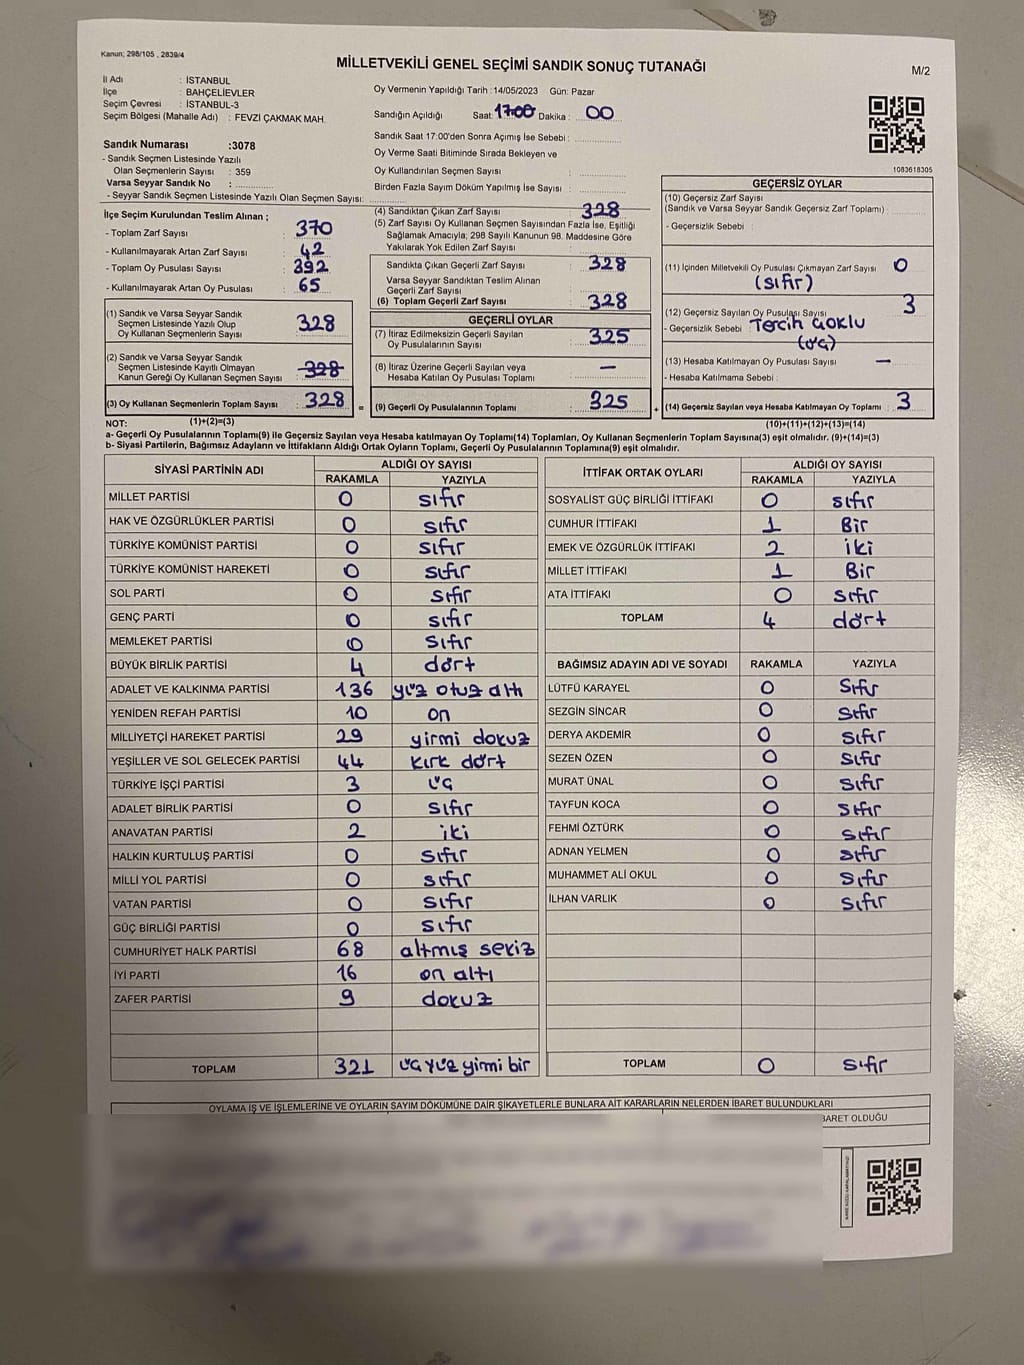 Kanun; 298/105 , 2839/4
MİLLETVEKİLİ GENEL SEÇİMİ SANDIK SONUÇ TUTANAĞI
M/2
İl Adı : İSTANBUL
İlçe : BAHÇELİEVLER
Seçim Çevresi : İSTANBUL-3
Seçim Bölgesi (Mahalle Adı) : FEVZİ ÇAKMAK MAH.
Sandık Numarası :3078
- Sandık Seçmen Listesinde Yazılı
Olan Seçmenlerin Sayısı : 359
Varsa Seyyar Sandık No :
- Seyyar Sandık Seçmen Listesinde Yazılı Olan Seçmen Sayısı:
Oy Vermenin Yapıldığı Tarih : 14/05/2023 Gün: Pazar
Sandığın Açıldığı Saat: 17:00 Dakika : 00
Sandık Saat 17:00'den Sonra Açımış İse Sebebi :
Oy Verme Saati Bitiminde Sırada Bekleyen ve
Oy Kullandırılan Seçmen Sayısı :
Birden Fazla Sayım Döküm Yapılmış İse Sayısı :
1083618305
İlçe Seçim Kurulundan Teslim Alınan ;
- Toplam Zarf Sayısı : 370
- Kullanılmayarak Artan Zarf Sayısı : 42
- Toplam Oy Pusulası Sayısı : 392
- Kullanılmayarak Artan Oy Pusulası : 65
(1) Sandık ve Varsa Seyyar Sandık
Seçmen Listesinde Yazılı Olup
Oy Kullanan Seçmenlerin Sayısı : 328
(2) Sandık ve Varsa Seyyar Sandık
Seçmen Listesinde Kayıtlı Olmayan
Kanun Gereği Oy Kullanan Seçmen Sayısı : 328
(3) Oy Kullanan Seçmenlerin Toplam Sayısı : 328
(4) Sandıktan Çıkan Zarf Sayısı : 328
(5) Zarf Sayısı Oy Kullanan Seçmen Sayısından Fazla İse, Eşitliği
Sağlamak Amacıyla; 298 Sayılı Kanunun 98. Maddesine Göre
Yakılarak Yok Edilen Zarf Sayısı :
Sandıkta Çıkan Geçerli Zarf Sayısı : 328
Varsa Seyyar Sandıktan Teslim Alınan
Geçerli Zarf Sayısı :
(6) Toplam Geçerli Zarf Sayısı : 328
GEÇERLİ OYLAR
(7) İtiraz Edilmeksizin Geçerli Sayılan
Oy Pusulalarının Sayısı : 325
(8) İtiraz Üzerine Geçerli Sayılan veya
Hesaba Katılan Oy Pusulası Toplamı : —
= (9) Geçerli Oy Pusulalarının Toplamı : 325
GEÇERSİZ OYLAR
(10) Geçersiz Zarf Sayısı
(Sandık ve Varsa Seyyar Sandık Geçersiz Zarf Toplamı) :
- Geçersizlik Sebebi :
(11) İçinden Milletvekili Oy Pusulası Çıkmayan Zarf Sayısı : 0
(sıfır)
(12) Geçersiz Sayılan Oy Pusulası Sayısı 3
- Geçersizlik Sebebi Tercih Çoklu
(üç)
(13) Hesaba Katılmayan Oy Pusulası Sayısı : —
- Hesaba Katılmama Sebebi :
+ (14) Geçersiz Sayılan veya Hesaba Katılmayan Oy Toplamı : 3
NOT: (1)+(2)=(3) (10)+(11)+(12)+(13)=(14)
a- Geçerli Oy Pusulalarının Toplamı(9) ile Geçersiz Sayılan veya Hesaba katılmayan Oy Toplamı(14) Toplamları, Oy Kullanan Seçmenlerin Toplam Sayısına(3) eşit olmalıdır. (9)+(14)=(3)
b- Siyasi Partilerin, Bağımsız Adayların ve İttifakların Aldığı Oyların Toplamı, Geçerli Oy Pusulalarının Toplamına(9) eşit olmalıdır.
SİYASİ PARTİNİN ADI ALDIĞI OY SAYISI
RAKAMLA YAZIYLA
MİLLET PARTİSİ 0 sıfır
HAK VE ÖZGÜRLÜKLER PARTİSİ 0 sıfır
TÜRKİYE KOMÜNİST PARTİSİ 0 sıfır
TÜRKİYE KOMÜNİST HAREKETİ 0 sıfır
SOL PARTİ 0 sıfır
GENÇ PARTİ 0 sıfır
MEMLEKET PARTİSİ 0 sıfır
BÜYÜK BİRLİK PARTİSİ 4 dört
ADALET VE KALKINMA PARTİSİ 136 yüz otuz altı
YENİDEN REFAH PARTİSİ 10 on
MİLLİYETÇİ HAREKET PARTİSİ 29 yirmi dokuz
YEŞİLLER VE SOL GELECEK PARTİSİ 44 kırk dört
TÜRKİYE İŞÇİ PARTİSİ 3 üç
ADALET BİRLİK PARTİSİ 0 sıfır
ANAVATAN PARTİSİ 2 iki
HALKIN KURTULUŞ PARTİSİ 0 sıfır
MİLLİ YOL PARTİSİ 0 sıfır
VATAN PARTİSİ 0 sıfır
GÜÇ BİRLİĞİ PARTİSİ 0 sıfır
CUMHURİYET HALK PARTİSİ 68 altmış sekiz
İYİ PARTİ 16 on altı
ZAFER PARTİSİ 9 dokuz
TOPLAM 321 üç yüz yirmi bir
İTTİFAK ORTAK OYLARI ALDIĞI OY SAYISI
RAKAMLA YAZIYLA
SOSYALİST GÜÇ BİRLİĞİ İTTİFAKI 0 sıfır
CUMHUR İTTİFAKI 1 Bir
EMEK VE ÖZGÜRLÜK İTTİFAKI 2 iki
MİLLET İTTİFAKI 1 Bir
ATA İTTİFAKI 0 sıfır
TOPLAM 4 dört
BAĞIMSIZ ADAYIN ADI VE SOYADI RAKAMLA YAZIYLA
LÜTFÜ KARAYEL 0 Sıfır
SEZGİN SİNCAR 0 Sıfır
DERYA AKDEMİR 0 sıfır
SEZEN ÖZEN 0 sıfır
MURAT ÜNAL 0 sıfır
TAYFUN KOCA 0 sıfır
FEHMİ ÖZTÜRK 0 sıfır
ADNAN YELMEN 0 sıfır
MUHAMMET ALİ OKUL 0 sıfır
İLHAN VARLIK 0 sıfır
TOPLAM 0 sıfır
OYLAMA İŞ VE İŞLEMLERİNE VE OYLARIN SAYIM DÖKÜMÜNE DAİR ŞİKAYETLERLE BUNLARA AİT KARARLARIN NELERDEN İBARET BULUNDUKLARI
BARET OLDUĞU